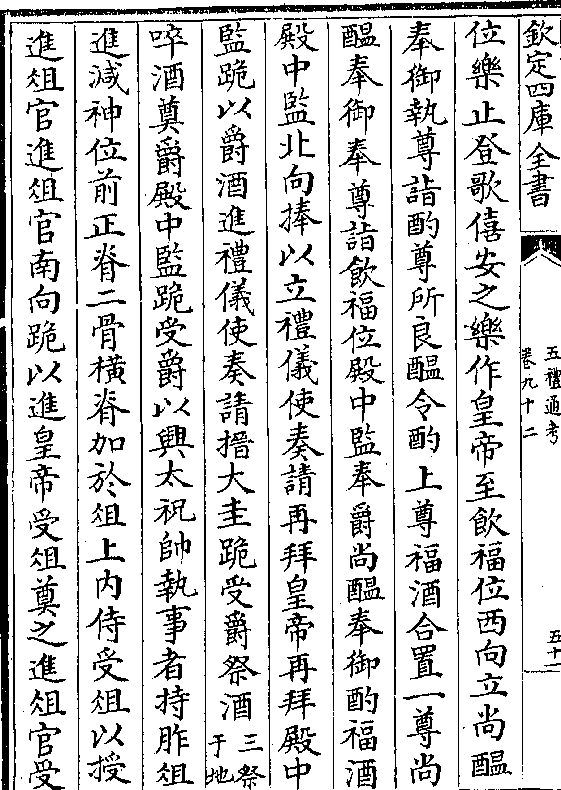 欽定四庫全書
五禮通考
卷九十二
五十一
位樂止登歌僖安之樂作皇帝至飲福位西向立尚醖
奉御執尊詣酌尊所良醖令酌上尊福酒合置一尊尚
醖奉御奉尊詣飲福位殿中監奉爵尚醖奉御酌福酒
殿中監北向捧以立禮儀使奏請再拜皇帝再拜殿中
監跪以爵酒進禮儀使奏請搢大圭跪受爵祭酒三祭于地
啐酒奠爵殿中監跪受爵以興太祝帥執事者持胙俎
進減神位前正脊二骨橫脊加於俎上內侍受俎以授
進俎官進俎官南向跪以進皇帝受俎奠之進俎官受